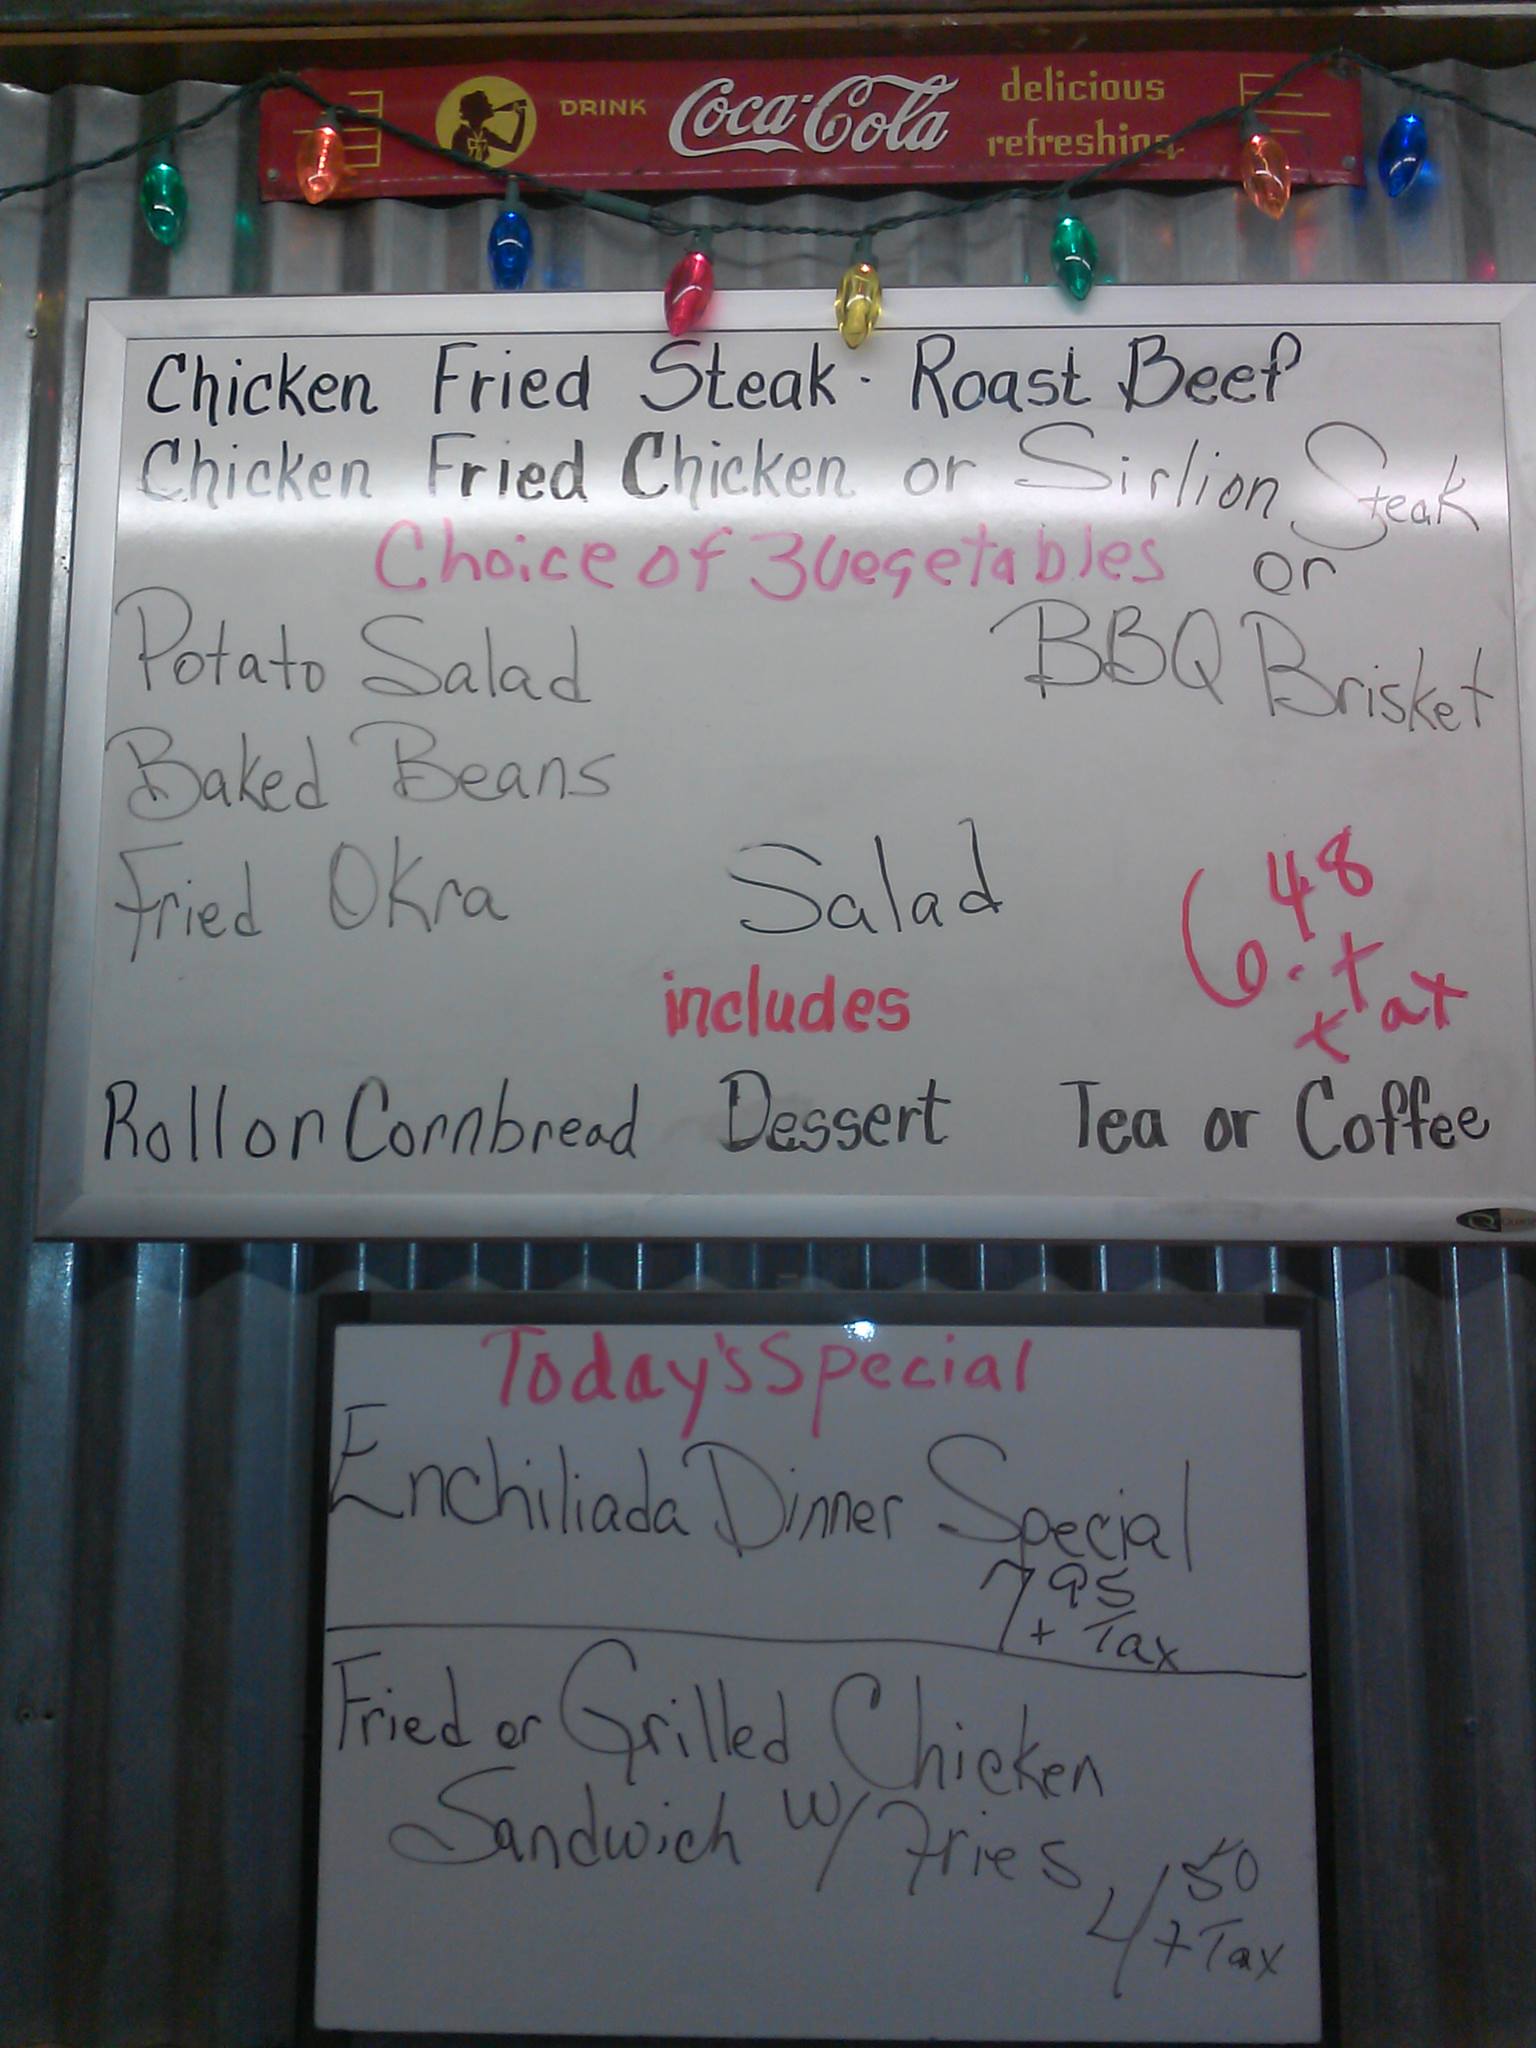 DRINK Coca-Cola delicious refreshing
Chicken Fried Steak · Roast Beef
Chicken Fried Chicken or Sirlion Steak
Choice of 3 Vegetables or
Potato Salad BBQ Brisket
Baked Beans
Fried Okra Salad 6.48
includes + tax
Roll or Cornbread Dessert Tea or Coffee
Today's Special
Enchiliada Dinner Special
7 95
+ Tax
Fried or Grilled Chicken
Sandwich w/ Fries
4 50
+ Tax